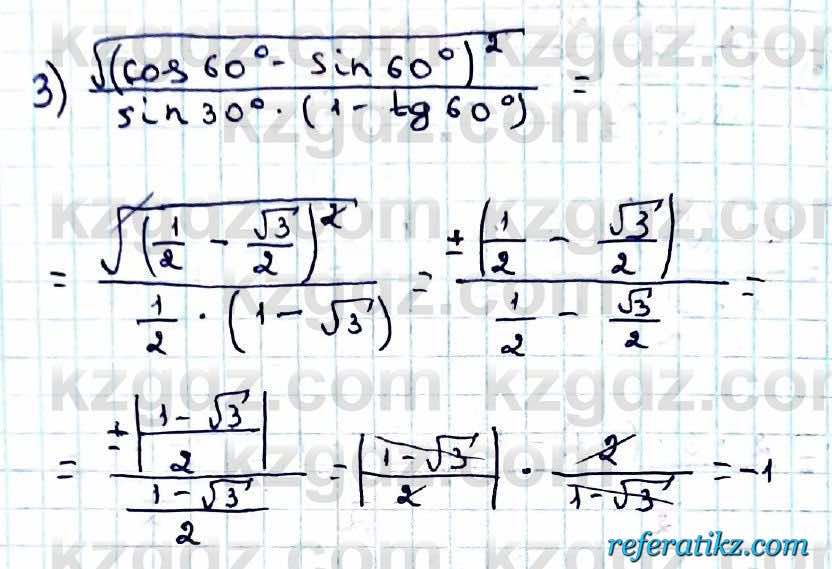 3) √(cos 60° - sin 60°)² / sin 30° · (1 - tg 60°) =
= √(1/2 - √3/2)² / 1/2 · (1 - √3) = ± |1/2 - √3/2| / 1/2 - √3/2 =
= ± |1 - √3 / 2| / 1 - √3 / 2 = |1 - √3 / 2| · 2 / 1 - √3 = -1
kzgdz.com
referatikz.com